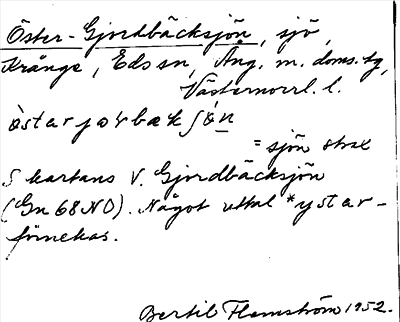 Öster-Gjordbäcksjön, sjö,
Krånge, Eds sn, Ång. m. doms.tg,
Västernorrl. l.
östar jorbæk ʃön
= sjön strax
S kartans V. Gjordbäcksjön
(Gn 68 NO). Något uttal *ystar-
förnekas.
Bertil Flemström 1952.